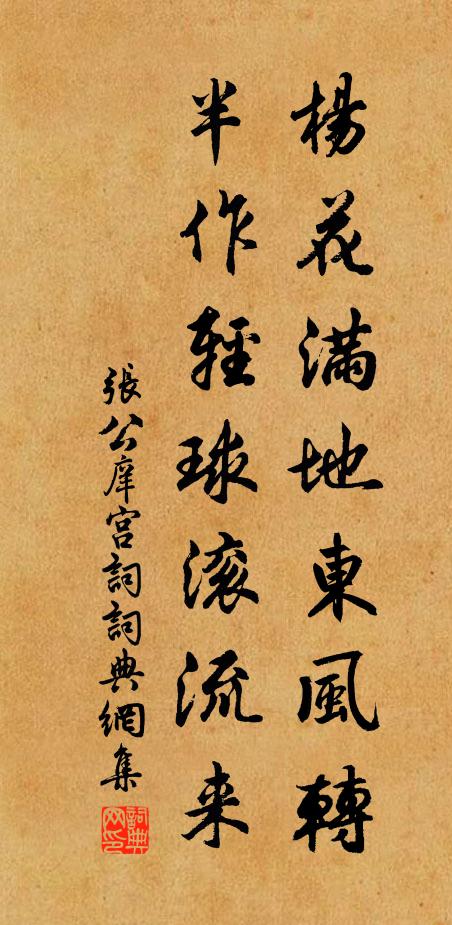 楊花滿地東風轉
半作輕球滚流来
張公庠宫詞詞典網集
詞典网印